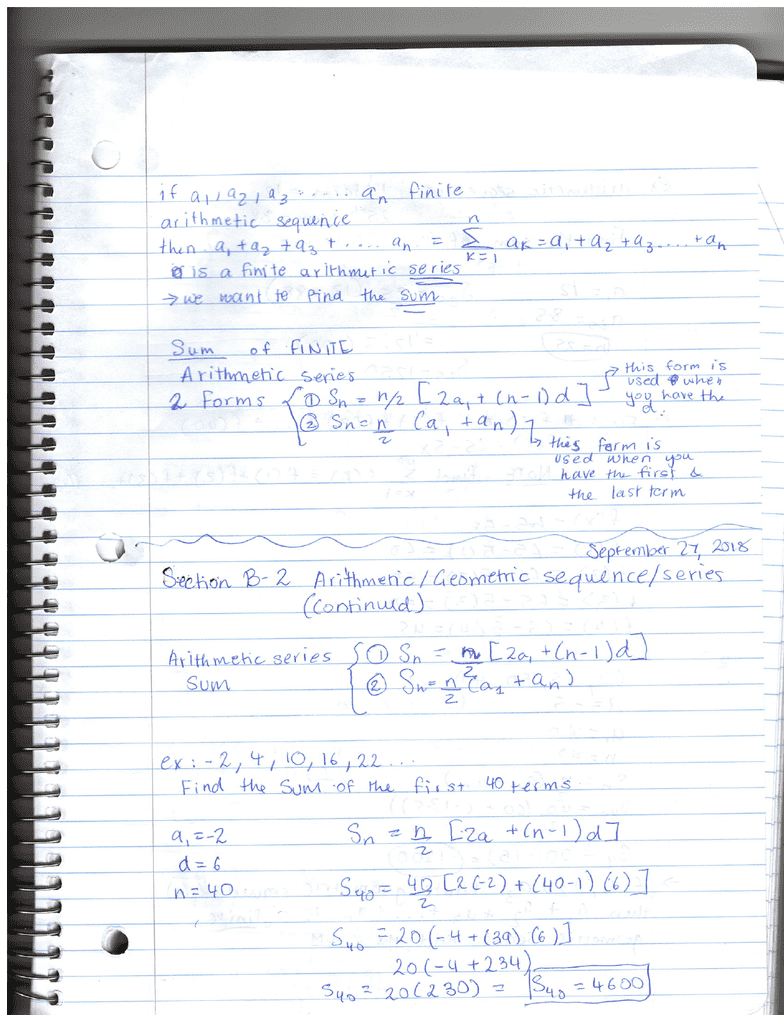 if a₁, a₂, a₃ ....... aₙ finite
arithmetic sequence
then a₁ + a₂ + a₃ + .... aₙ = n Σ K=1 aₖ = a₁ + a₂ + a₃ .... + aₙ
is a finite arithmetic series
→ we want to find the sum
Sum of FINITE
Arithmetic series
2 Forms { ① Sₙ = n/2 [2a₁ + (n-1)d] → this form is
used when
you have the
d.
② Sₙ = n/2 (a₁ + aₙ) ↳ this form is
used when you
have the first &
the last term
September 27, 2018
Section B-2 Arithmetic/Geometric sequence/series
(Continued)
Arithmetic series { ① Sₙ = n/2 [2a₁ + (n-1)d]
Sum ② Sₙ = n/2 (a₁ + aₙ)
ex: -2, 4, 10, 16, 22 ...
Find the sum of the first 40 terms
a₁ = -2 Sₙ = n/2 [2a + (n-1)d]
d = 6
n = 40 S₄₀ = 40/2 [2(-2) + (40-1)(6)]
S₄₀ = 20(-4 + (39)(6)]
20(-4 + 234)
S₄₀ = 20(230) = S₄₀ = 4600